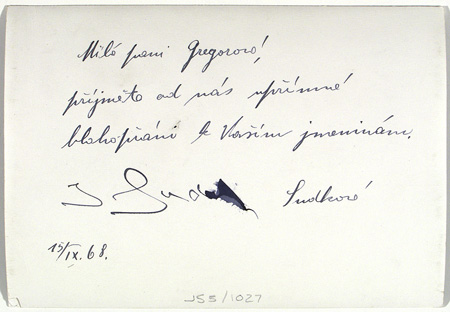 Milá paní Gregorová,
přijměte od nás upřímné
blahopřání k Vaším jmeninám.
J Sudkové
15/IX. 68.
JS5/1027